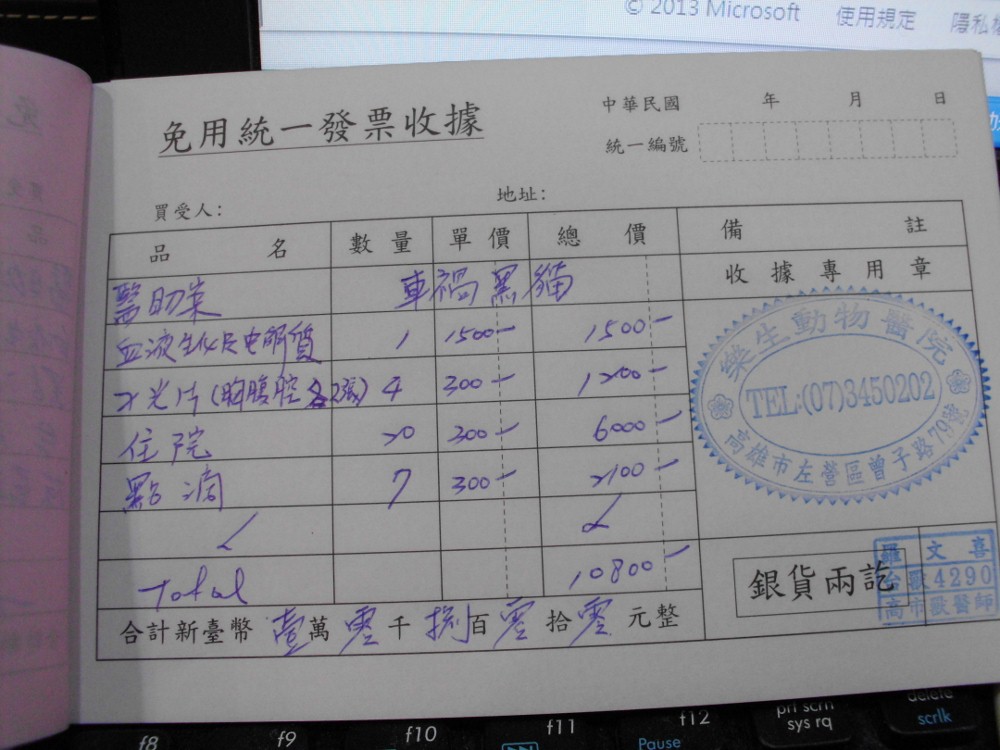 © 2013 Microsoft 使用規定 隱私
免用統一發票收據
中華民國 年 月 日
統一編號
買受人：
地址：
品名 數量 單價 總價 備註
收據專用章
醫助案 車禍黑貓
血液生化及电解質 1 1500 1500
X光片(胸腹腔各2張) 4 300 1200
住院 20 300 6000
點滴 7 300 2100
Total 10800
合計新臺幣 壹萬零千捌百零拾零元整
樂生動物醫院
TEL:(07)3450202
高雄市左營區曾子路79號
銀貨兩訖
羅文喜
台獸4290
高市獸醫師
f8 f9 f10 f11 f12 prt scrn delete
Pause sys rq scrlk